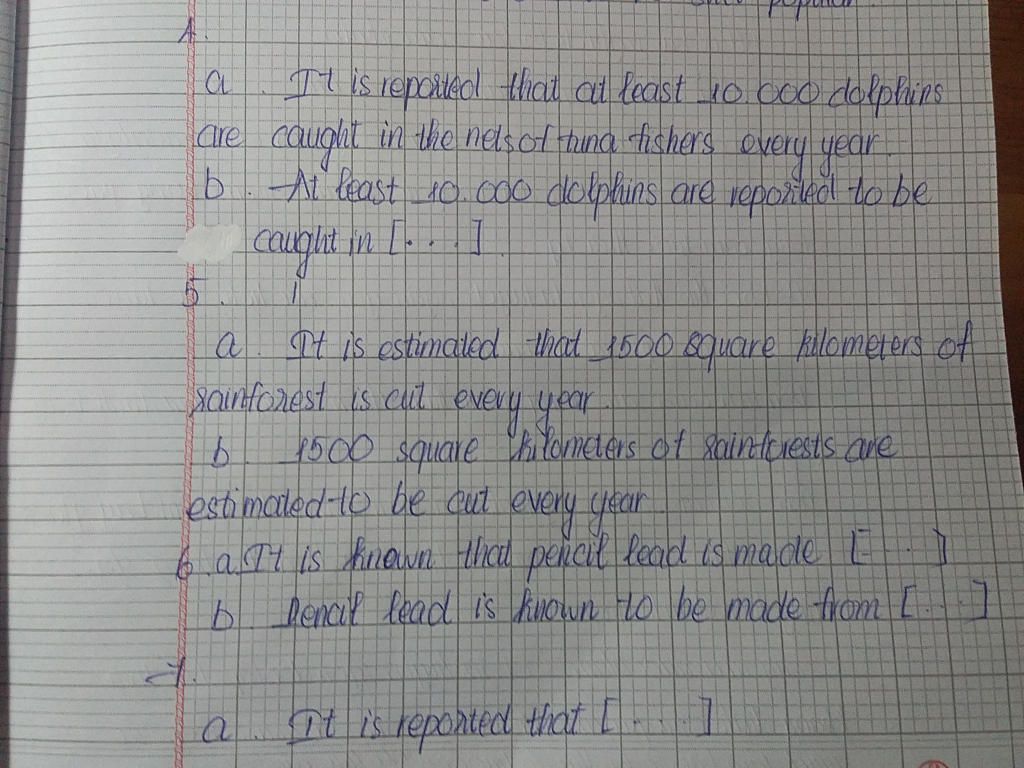 popular
4.
a. It is reported that at least 10.000 dolphins
are caught in the nets of tuna fishers every year.
b. At least 10.000 dolphins are reported to be
caught in [...]
5.
a. It is estimated that 1500 square kilometers of
rainforest is cut every year.
b. 1500 square kilometers of rainforests are
estimated to be cut every year
6. a. It is known that pencil lead is made [...]
b. Pencil lead is known to be made from [...]
7.
a. It is reported that [...]